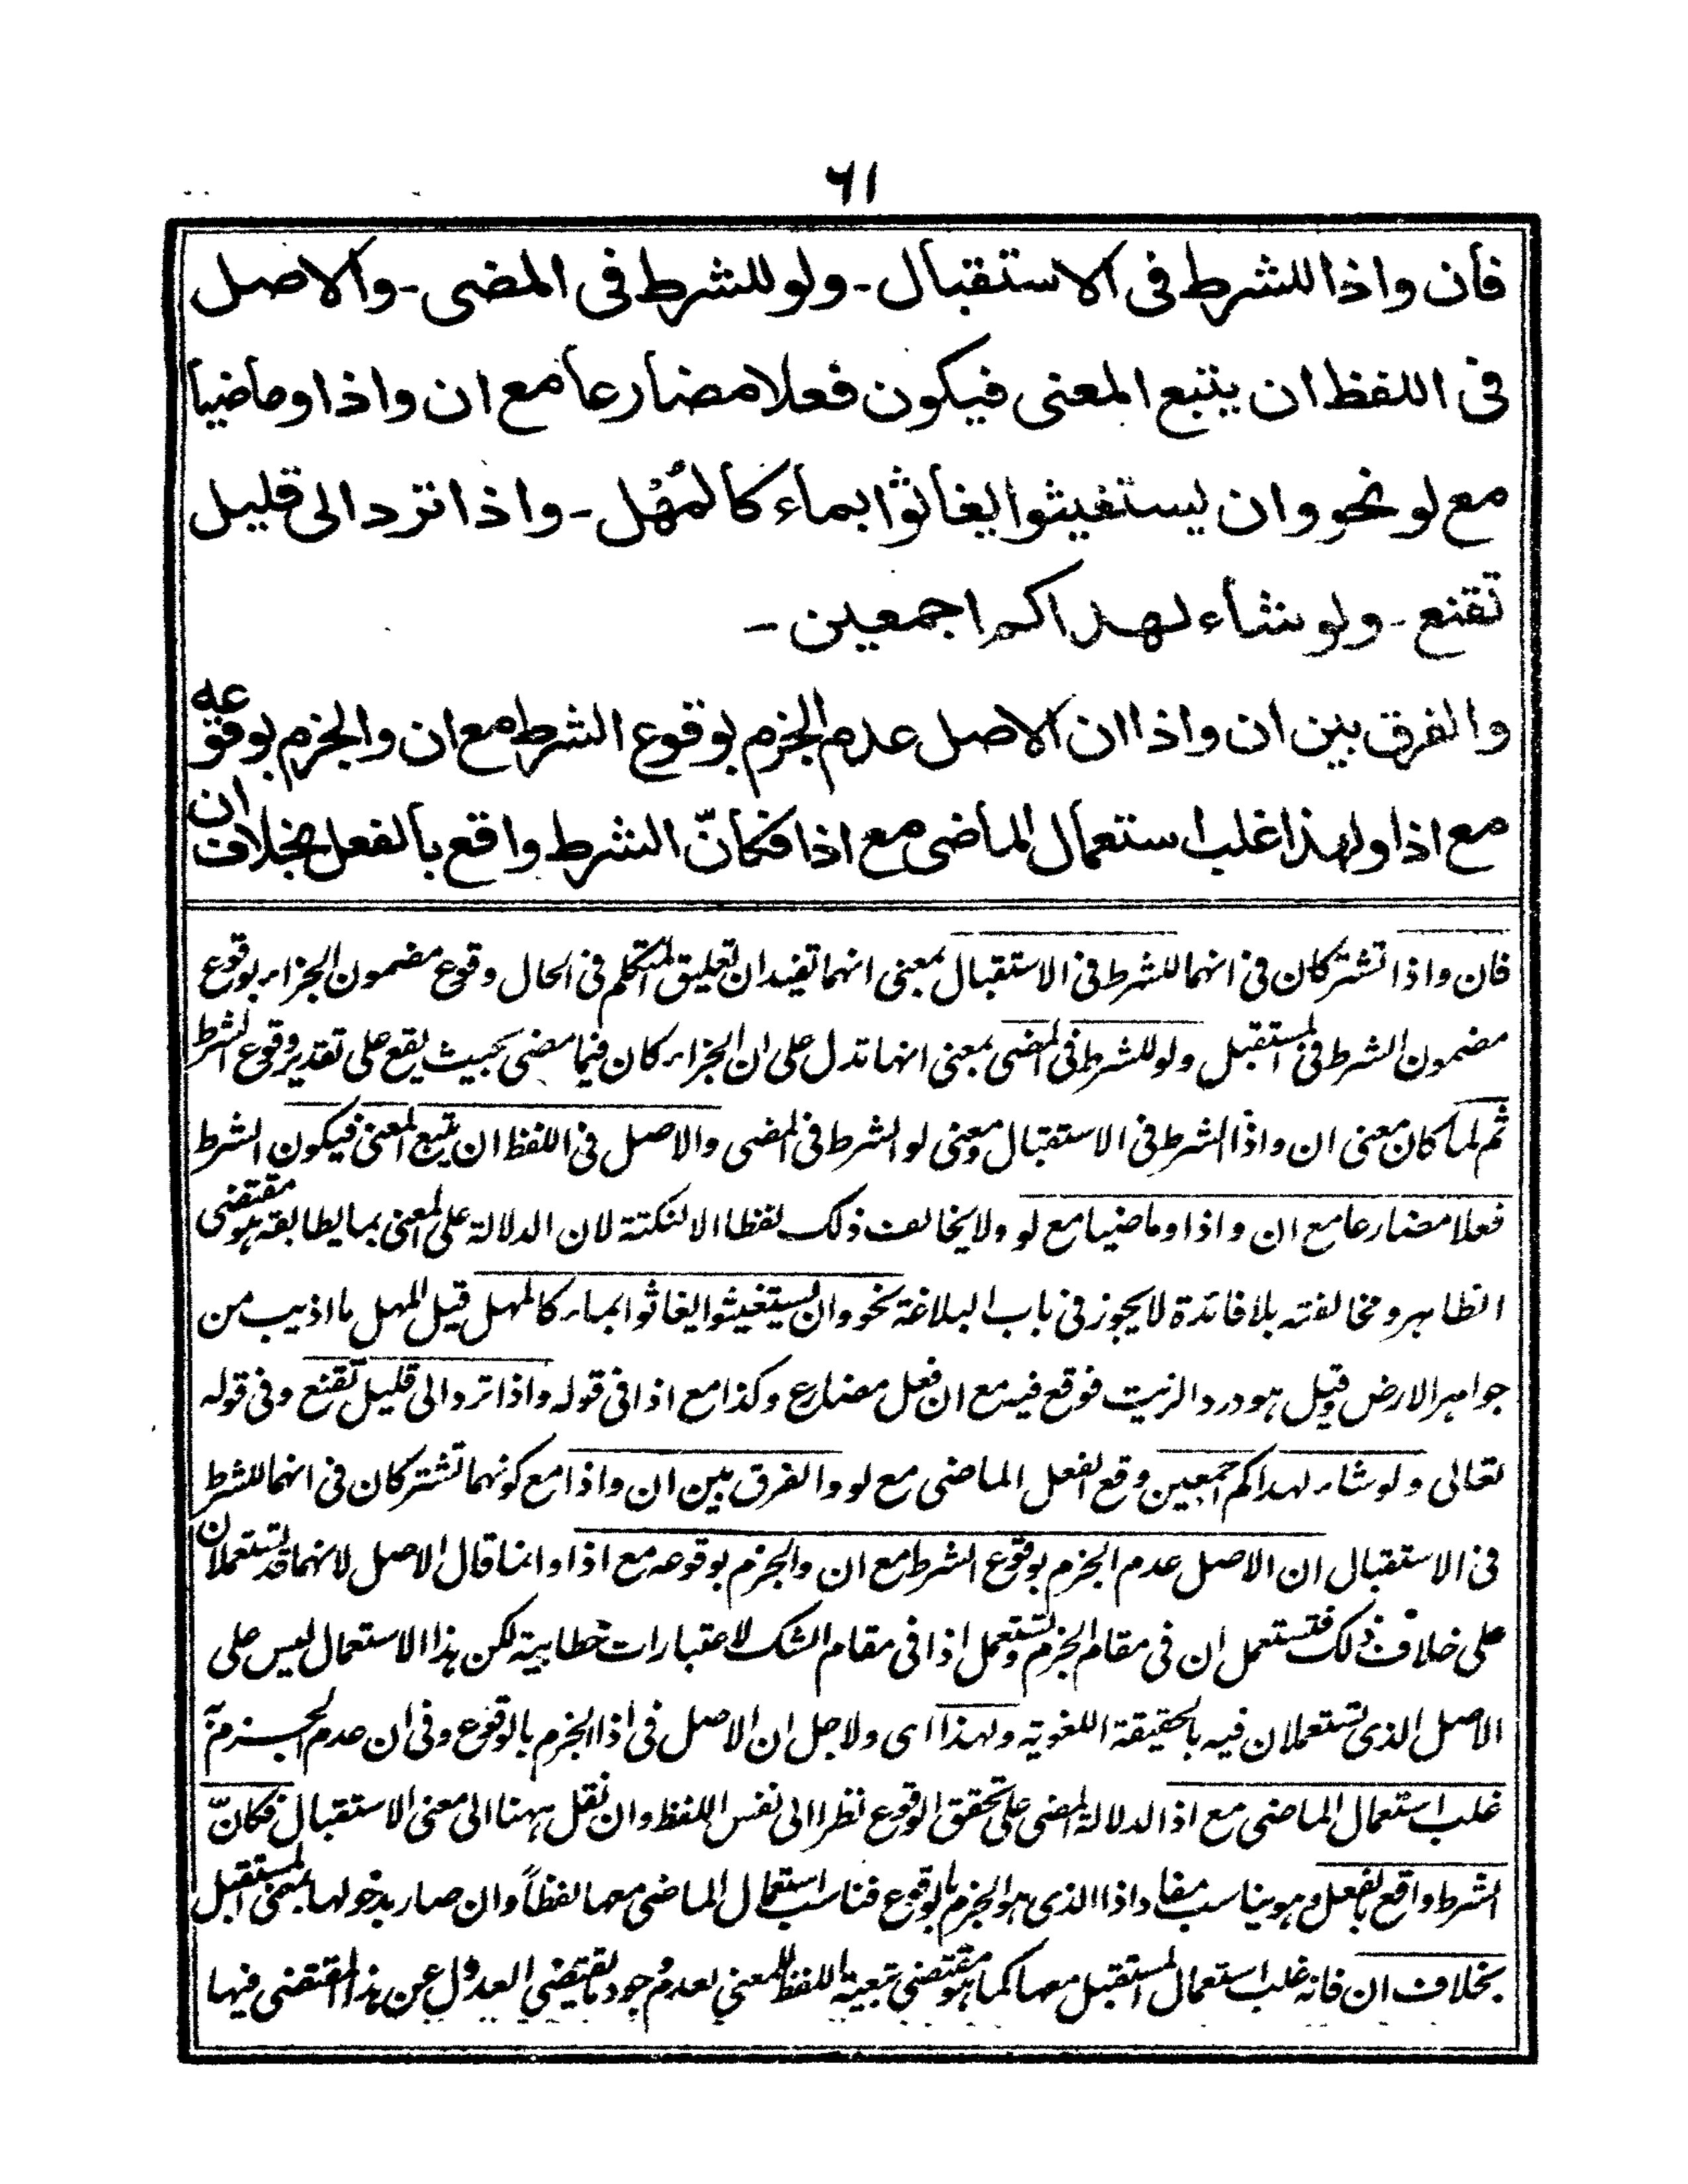 ٦١
فان واذا للشرط فى الاستقبال - ولو للشرط فى المضى - والاصل
فى اللفظ ان يتبع المعنى فيكون فعلا مضارعا مع ان واذا وماضيا
مع لو نحو وان يستغيثوا يغاثوا بماء كالمُهْل - واذا ترد الى قليل
تقنع - ولو شاء لهداكم اجمعين -
والفرق بين ان واذا ان الاصل عدم الجزم بوقوع الشرط مع ان والجزم بوقوعه
مع اذا ولهذا غلب استعمال الماضى مع اذا فكانّ الشرط واقع بالفعل بخلاف ان
فان واذا تشتركان فى انهما للشرط فى الاستقبال بمعنى انهما تفيدان تعليق المتكلم فى الحال وقوع مضمون الجزاء بوقوع
مضمون الشرط فى المستقبل ولو للشرط فى المضى بمعنى انها تدل على ان الجزاء كان فيما مضى بحيث يقع على تقدير وقوع الشرط
ثم لما كان معنى ان واذا الشرط فى الاستقبال ومعنى لو الشرط فى المضى والاصل فى اللفظ ان يتبع المعنى فيكون الشرط
فعلا مضارعا مع ان واذا وماضيا مع لو ولا يخالف ذلك لفظا الا لنكتة لان الدلالة على المعنى بما يطابقه هو مقتضى
الظاهر ومخالفته بلا فائدة لا يجوز فى باب البلاغة نحو وان يستغيثوا يغاثوا بماء كالمهل قيل المهل ما اذيب من
جواهر الارض وقيل هو دردالزيت فوقع فيه مع ان فعل مضارع وكذا مع اذا فى قوله واذا ترد الى قليل تقنع وفى قوله
تعالى ولو شاء لهداكم اجمعين وقع الفعل الماضى مع لو والفرق بين ان واذا مع كونهما تشتركان فى انهما للشرط
فى الاستقبال ان الاصل عدم الجزم بوقوع الشرط مع ان والجزم بوقوعه مع اذا وانما قال الاصل لانهما قد تستعملان
على خلاف ذلك فتستعمل ان فى مقام الجزم وتستعمل اذا فى مقام الشك لاعتبارات خطابية لكن هذا الاستعمال ليس على
الاصل الذى تستعملان فيه بالحقيقة اللغوية ولهذا اى ولاجل ان الاصل فى اذا الجزم بالوقوع وفى ان عدم الجزم به
غلب استعمال الماضى مع اذا لدلالة المضى على تحقق الوقوع نظرا الى نفس اللفظ وان نقل ههنا الى معنى الاستقبال فكانّ
الشرط واقع بالفعل وهو يناسب مفاد اذا الذى هو الجزم بالوقوع فناسب استعمال الماضى معها لفظاً وان صار بدخولها بمعنى المستقبل
بخلاف ان فانه غلب استعمال المستقبل معها كما هو مقتضى تبعية اللفظ للمعنى لعدم وجود ما يقتضى العدول عن هذا المقتضى فيها